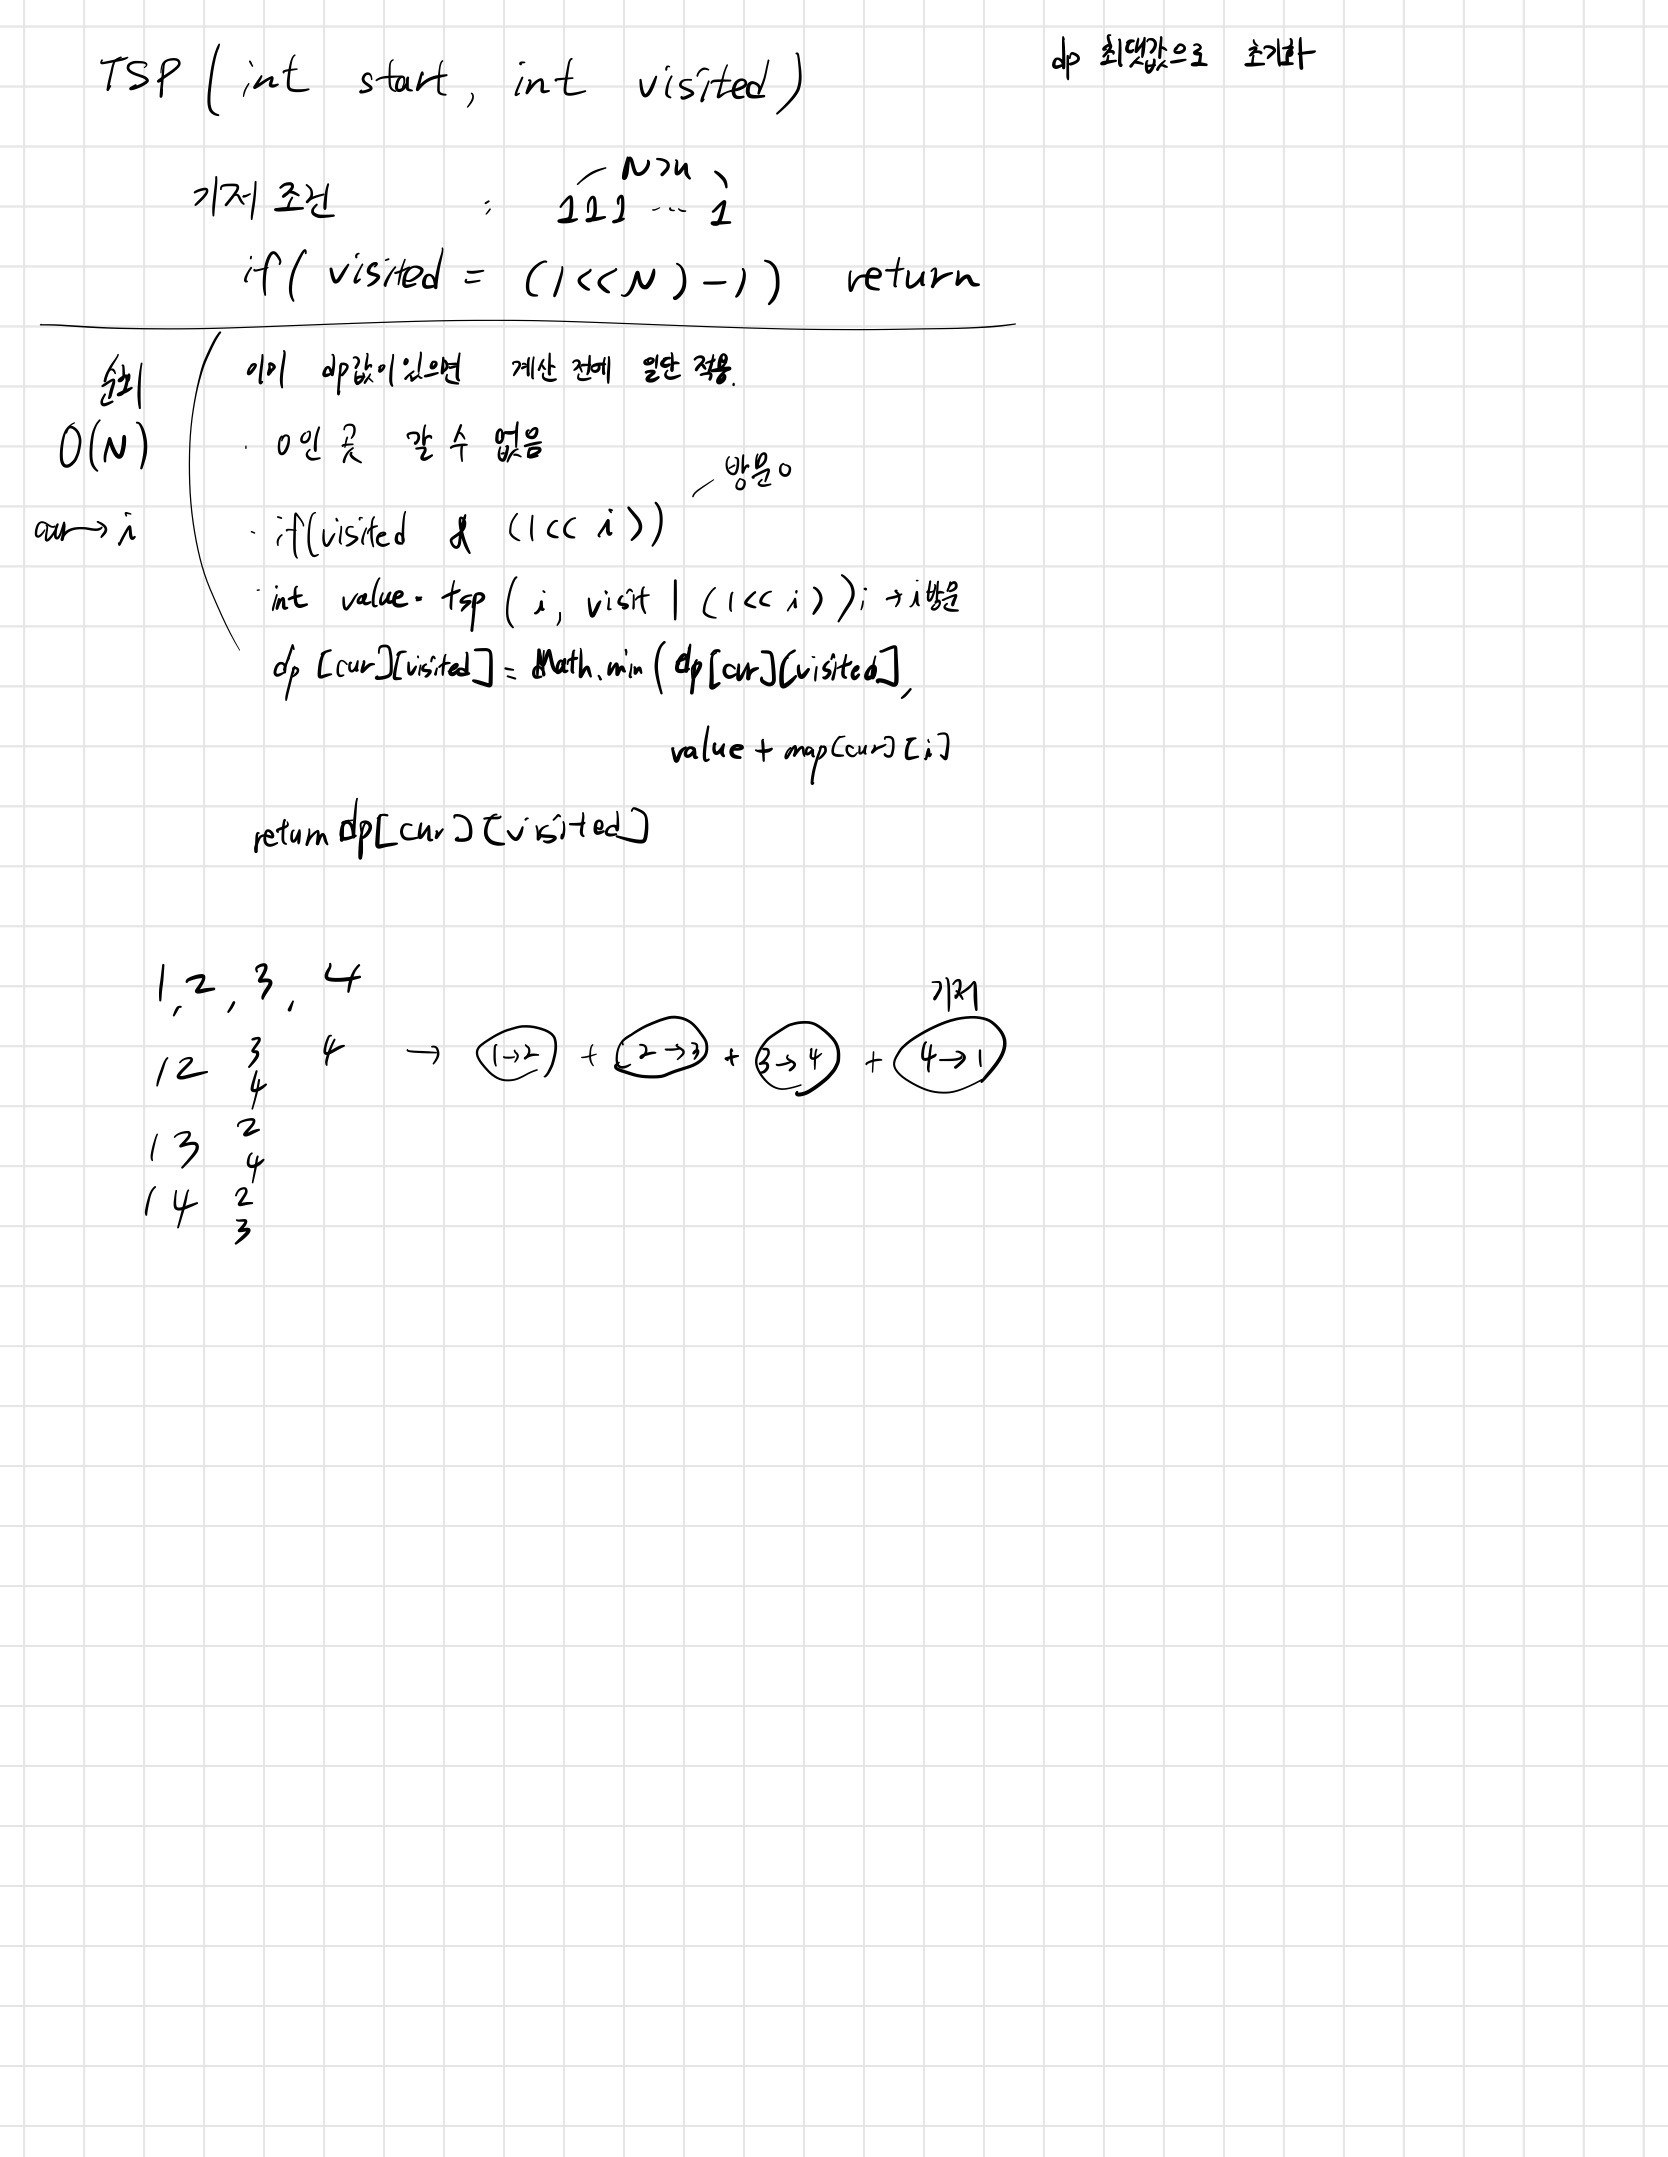 TSP ( int start, int visited )
dp 최댓값으로 초기화
N개
기저 조건 : 111 ... 1
if( visited = (1<<N)-1) return
순회
O(N)
cur→i
이미 dp값이 있으면 계산 전에 일단 적용.
· 0인 곳 갈 수 없음
방문 o
· if(visited & (1<< i))
· int value = tsp ( i, visit | (1<< i)); → i 방문
dp [cur][visited] = Math.min ( dp[cur][visited],
value + map[cur][i]
return dp[cur][visited]
1, 2, 3, 4
기저
1 2 3 4 → 1→2 + 2→3 + 3→4 + 4→1
4
1 3 2
4
1 4 2
3